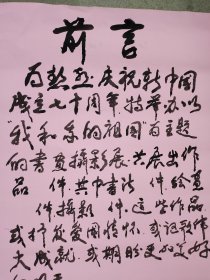 前言
为热烈庆祝新中国
成立七十周年,特举办以
"我和我的祖国"为主题
的书画摄影展,共展出作
品 件,其中书法 件,绘画
件,摄影 件,这些作品
或抒发爱国情怀,或记载伟
大成就,或期盼更的美好